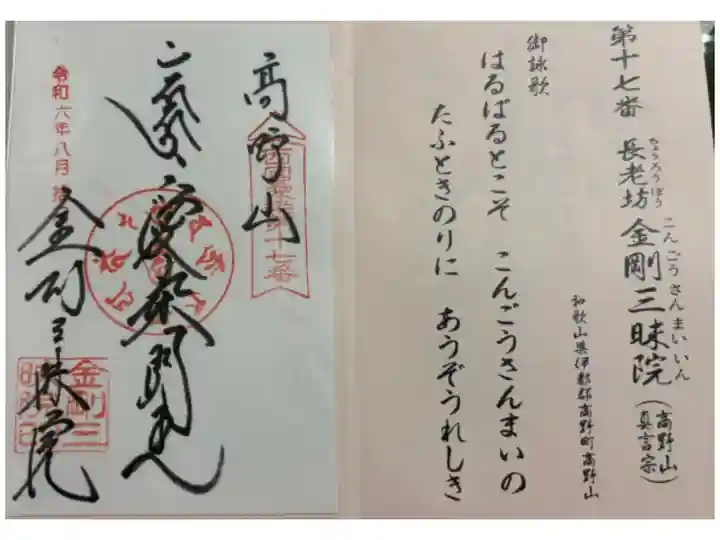 第十七番 長老坊 金剛三昧院 (高野山真言宗)
ちょうろうぼう こんごうさんまいいん
和歌山県伊都郡高野町高野山
御詠歌
はるばるとこそ こんごうさんまいの
たふときのりに あうぞうれしき
高野山
十七番
金剛三昧院
令和六年八月
金剛三